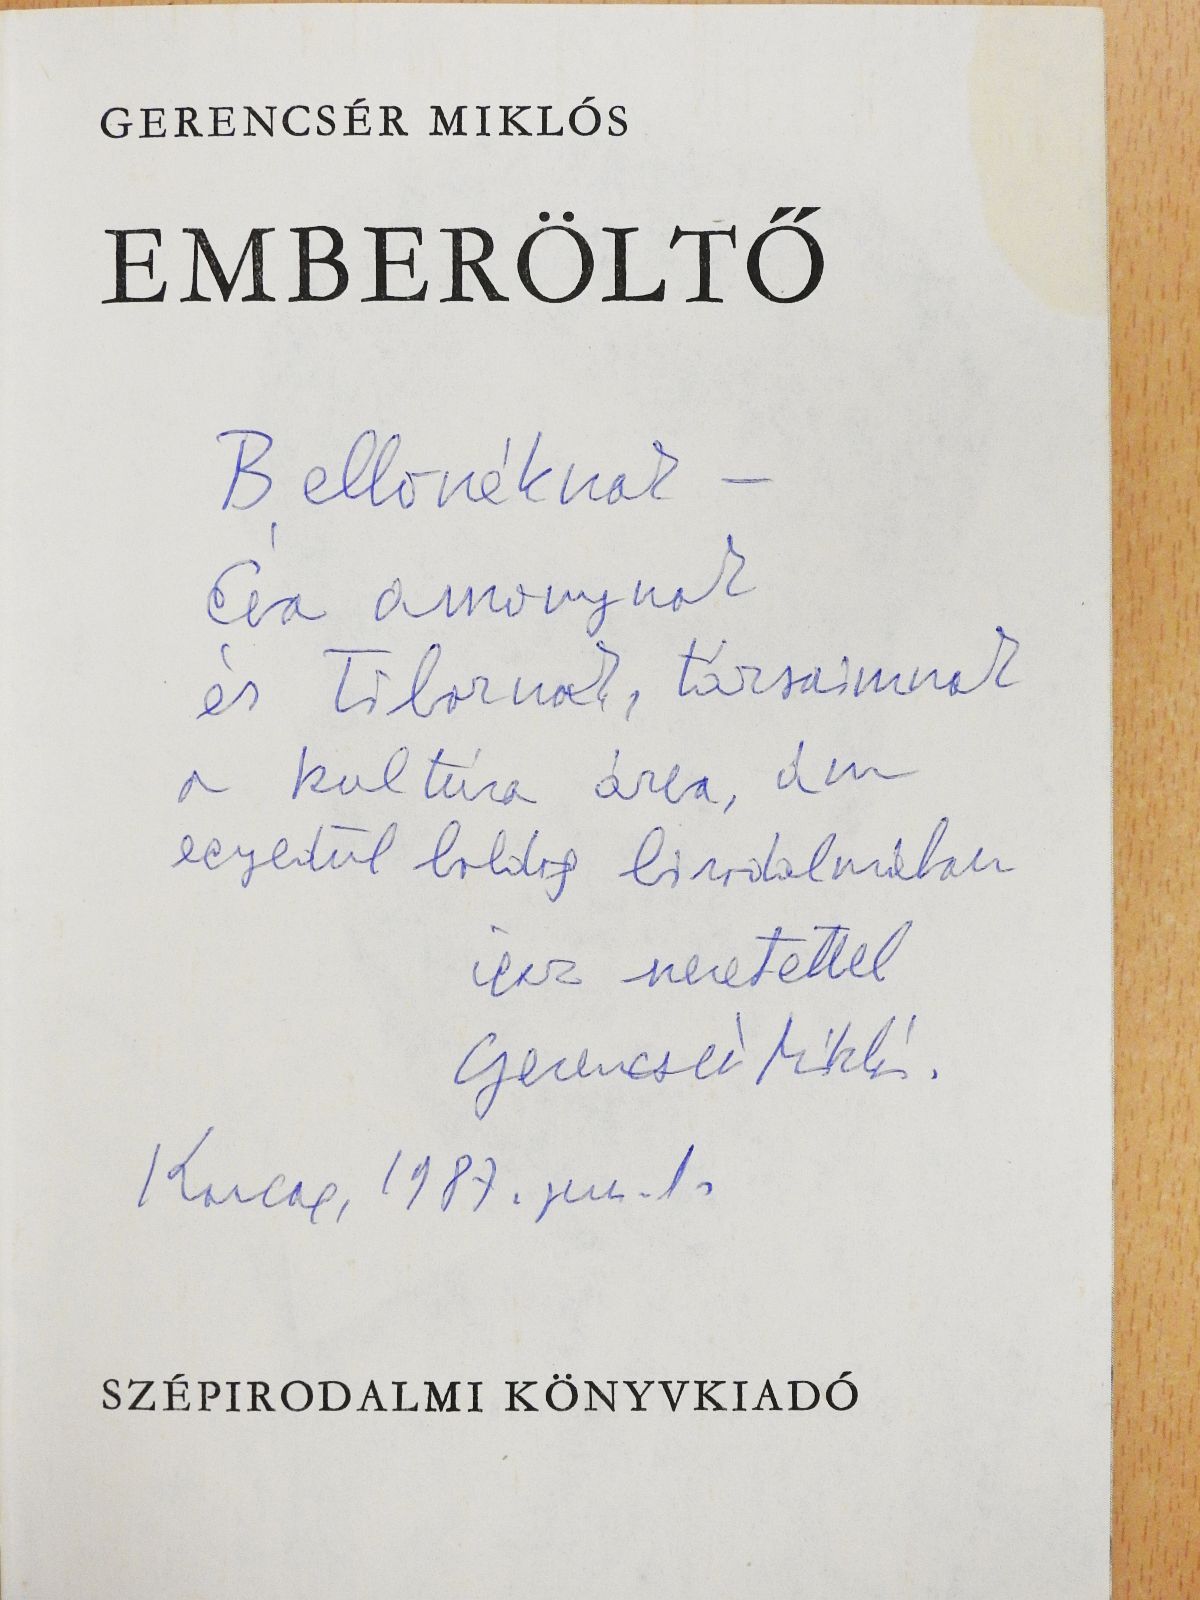 GERENCSÉR MIKLÓS
EMBERÖLTŐ
Bellonéknak –
Éva asszonynak
és Tibornak, társaimnak
a kultúra árva, ám
egyedül boldog birodalmában
igaz szeretettel
Gerencsér Miklós.
Karcag, 1987. jun. 1.
SZÉPIRODALMI KÖNYVKIADÓ